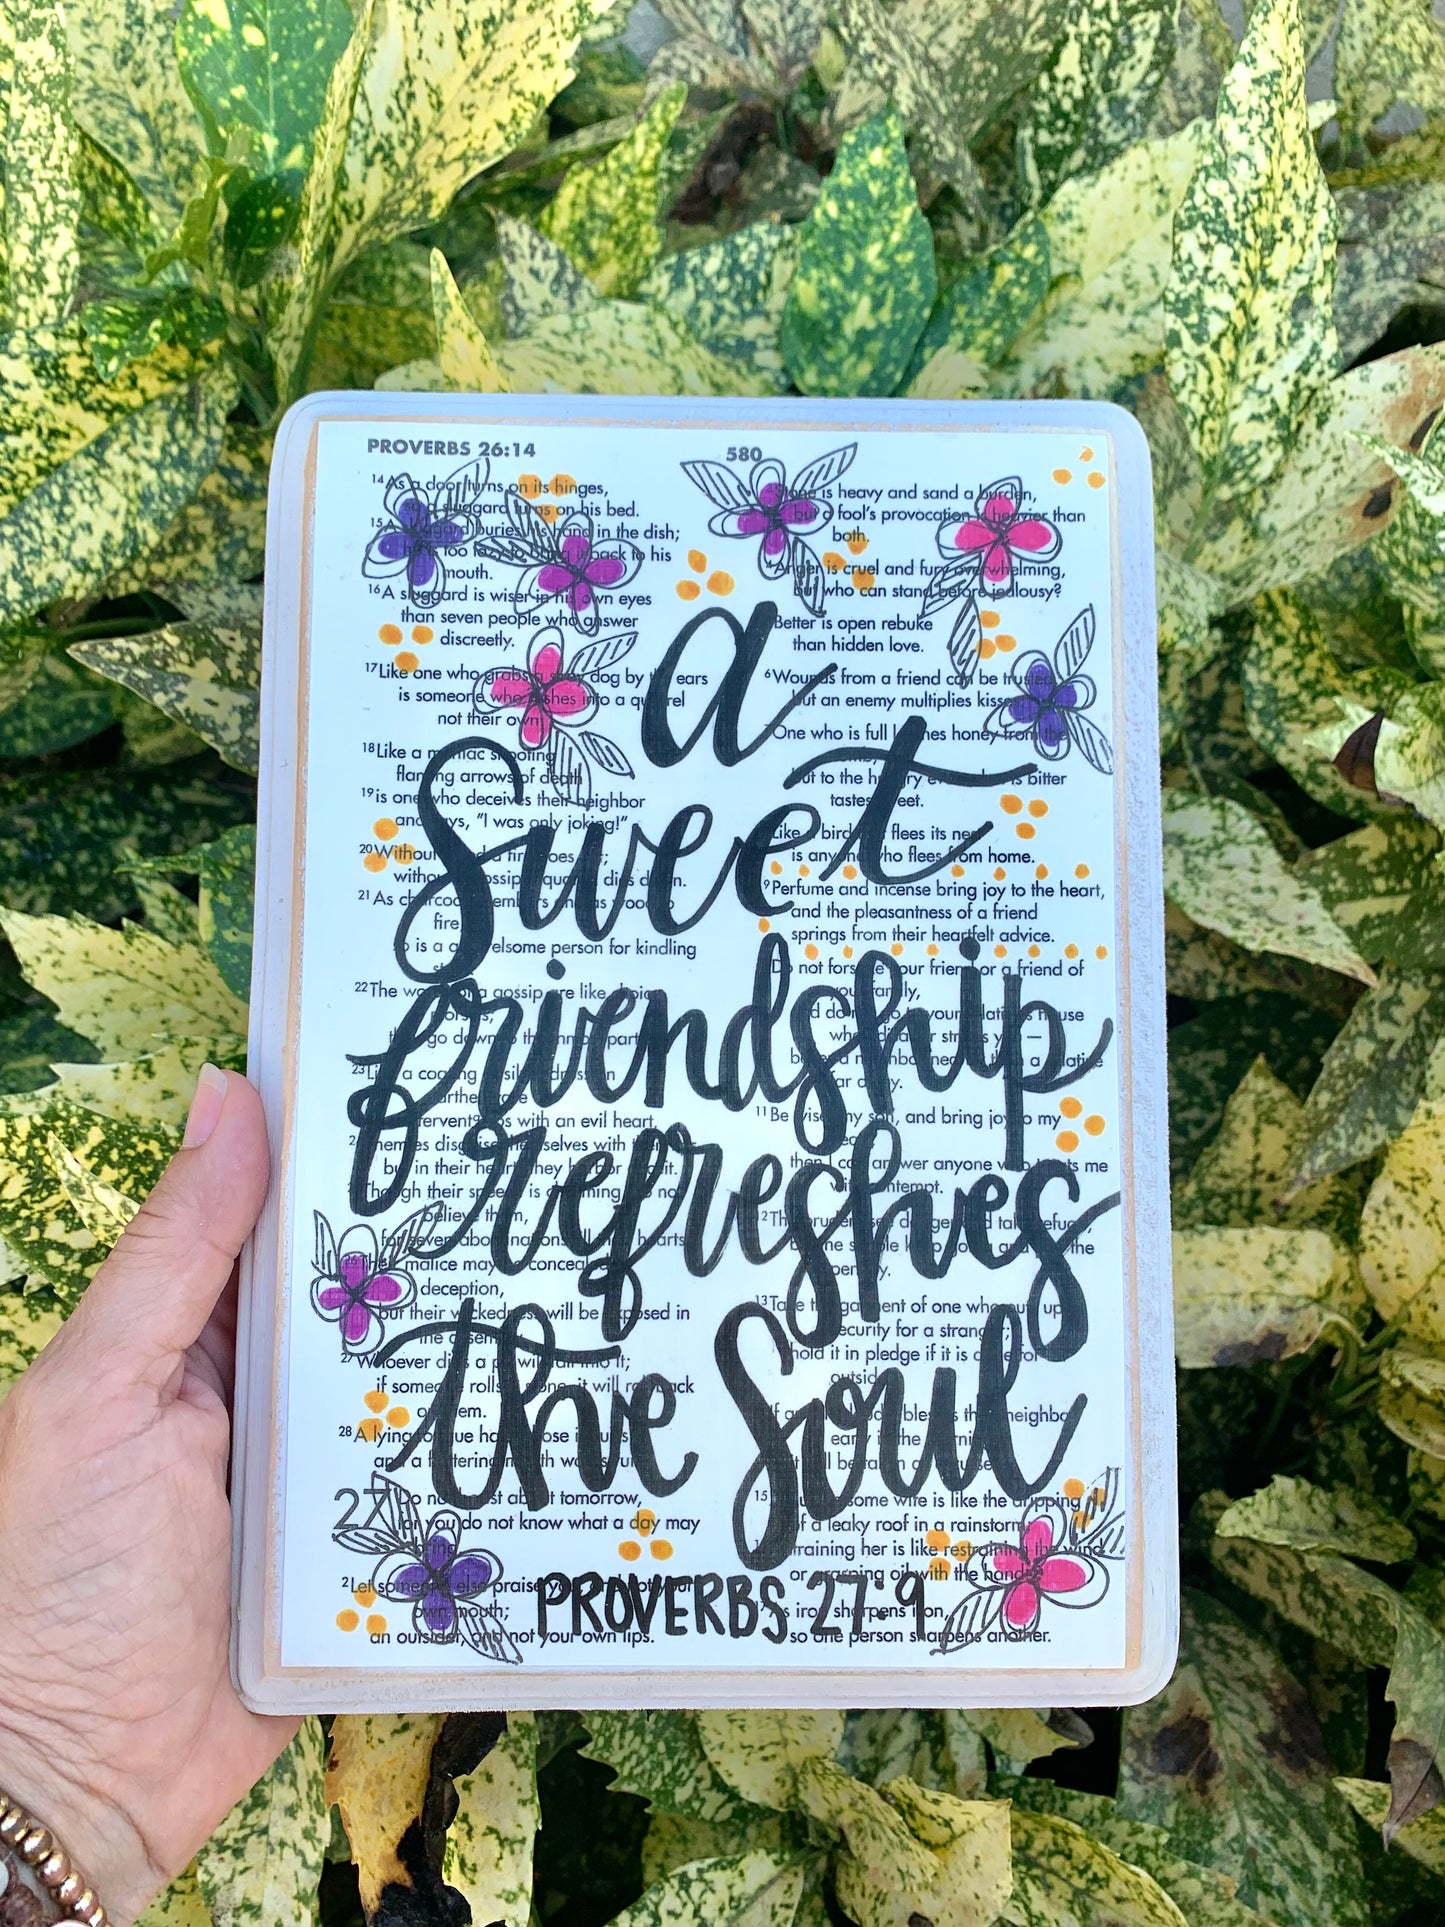 PROVERBS 26:14
580
14 As a door turns on its hinges,
so a sluggard turns on his bed.
15 A sluggard buries his hand in the dish;
he is too lazy to bring it back to his
mouth.
16 A sluggard is wiser in his own eyes
than seven people who answer
discreetly.
17 Like one who grabs a stray dog by the ears
is someone who rushes into a quarrel
not their own.
18 Like a maniac shooting
flaming arrows of death
19 is one who deceives their neighbor
and says, "I was only joking!"
20 Without wood a fire goes out;
without a gossip a quarrel dies down.
21 As charcoal to embers and as wood to
fire,
so is a quarrelsome person for kindling
22 The words of a gossip are like choice
they go down to the inmost parts.
fervent lips with an evil heart.
Enemies disguise themselves with their lips
but in their hearts they harbor deceit.
Though their speech is charming, do not
believe them,
for seven abominations fill their hearts.
26 Their malice may be concealed by
deception,
but their wickedness will be exposed in
the assembly.
27 Whoever digs a pit will fall into it;
if someone rolls a stone, it will roll back
on them.
28 A lying tongue hates those it hurts,
and a flattering mouth works ruin.
27 Do not boast about tomorrow,
for you do not know what a day may
bring.
2 Let someone else praise you, and not your
own mouth;
an outsider, and not your own lips.
Stone is heavy and sand a burden,
but a fool's provocation is heavier than
both.
4 Anger is cruel and fury overwhelming,
but who can stand before jealousy?
Better is open rebuke
than hidden love.
6 Wounds from a friend can be trusted,
but an enemy multiplies kisses.
One who is full loathes honey from the
but to the hungry even what is bitter
tastes sweet.
Like a bird that flees its nest
is anyone who flees from home.
9 Perfume and incense bring joy to the heart,
and the pleasantness of a friend
springs from their heartfelt advice.
Do not forsake your friend or a friend of
your family,
and do not go to your relative's house
when disaster strikes you —
better a neighbor nearby than a relative
far away.
11 Be wise, my son, and bring joy to my
heart;
then I can answer anyone who treats me
with contempt.
12 The prudent see danger and take refuge,
but the simple keep going and pay the
penalty.
13 Take the garment of one who puts up
security for a stranger;
hold it in pledge if it is done for
outsider.
If anyone loudly blesses their neighbor
early in the morning,
it will be taken as a curse.
15 A quarrelsome wife is like the dripping
of a leaky roof in a rainstorm;
restraining her is like restraining the wind
or grasping oil with the hand.
As iron sharpens iron,
so one person sharpens another.
a
Sweet
friendship
refreshes
the Soul
PROVERBS 27:9